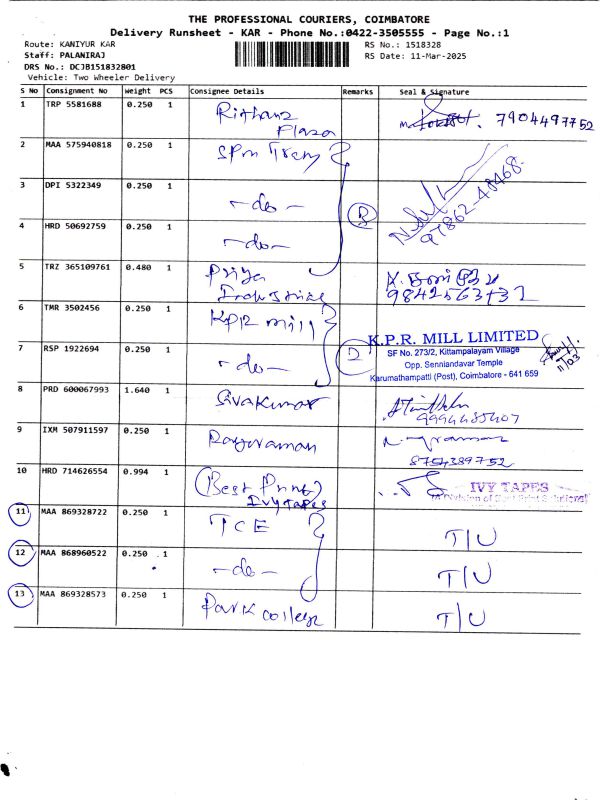 THE PROFESSIONAL COURIERS, COIMBATORE
Delivery Runsheet - KAR - Phone No.:0422-3505555 - Page No.:1
Route: KANIYUR KAR RS No.: 1518328
Staff: PALANIRAJ RS Date: 11-Mar-2025
DRS No.: DCJB151832801
Vehicle: Two Wheeler Delivery
S No Consignment No Weight PCS Consignee Details Remarks Seal & Signature
1 TRP 5581688 0.250 1 Rithanz Plaza 7904497752
2 MAA 575940818 0.250 1 SPM
3 DPI 5322349 0.250 1 -do- 97862-48468
4 HRD 50692759 0.250 1 -do-
5 TRZ 365109761 0.480 1 Priya Industries
6 TMR 3502456 0.250 1 KPR mill K.P.R. MILL LIMITED
SF No. 273/2, Kittampalayam Village
7 RSP 1922694 0.250 1 -do- 2 Opp. Senniandavar Temple
11/03
Karumathampatti (Post), Coimbatore - 641 659
8 PRD 600067993 1.640 1 Sivakumar 9994485407
9 IXM 507911597 0.250 1 Rayuraman 8754389752
10 HRD 714626554 0.994 1 (Best Print) Ivy tapes IVY TAPES
11 MAA 869328722 0.250 1 TCE T/U
12 MAA 868960522 0.250 1 -do- T/U
13 MAA 869328573 0.250 1 Park college T/U